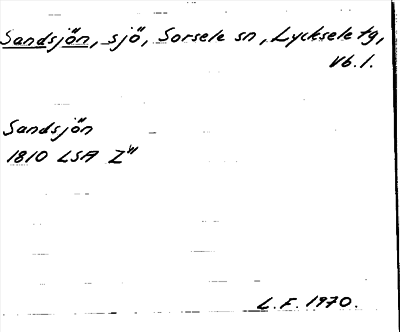 Sandsjön, sjö, Sorsele sn, Lycksele tg,
Vb. l.
Sandsjön
1810 LSA Z"
L.F. 1970.